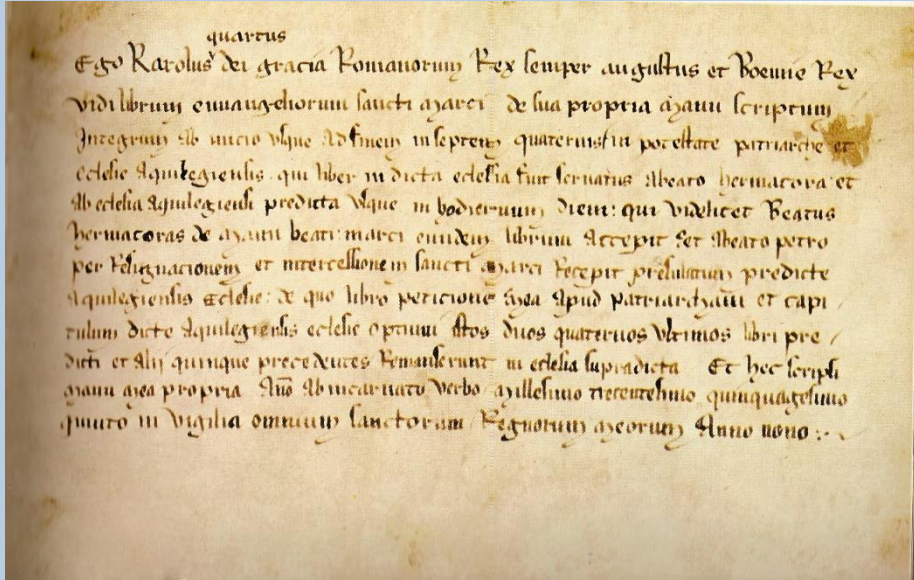 quartus
Ego Karolus dei gracia Romanorum Rex semper augustus et Boemie Rex
vidi librum euuangeliorum sancti marci de sua propria manu scriptum
Integrum Ab inicio vsque Ad finem in septem quaternis in potestate patriarche et
eclesie Aquilegiensis. qui liber in dicta eclesia fuit seruatus Abeato hermacora et
Ab eclesia Aquilegiensi predicta vsque in hodiernum diem: qui videlicet Beatus
hermacoras de manu beati marci eundem librum Accepit Et Abeato petro
per Resignacionem et intercessionem sancti marci Recepit presulatum predicte
Aquilegiensis Eclesie: de quo libro peticione mea Apud patriarcham et capi
tulum dicte Aquilegiensis eclesie optinui istos duos quaternos vltimos libri pre /
dicti et Alii quinque precedentes Remanserunt in eclesia supradicta Et hec scripsi
manu mea propria Ano Ab incarnato verbo millesimo trecentesimo quinquagesimo
quinto in vigilia omnium sanctorum / Regnorum meorum Anno nono :.